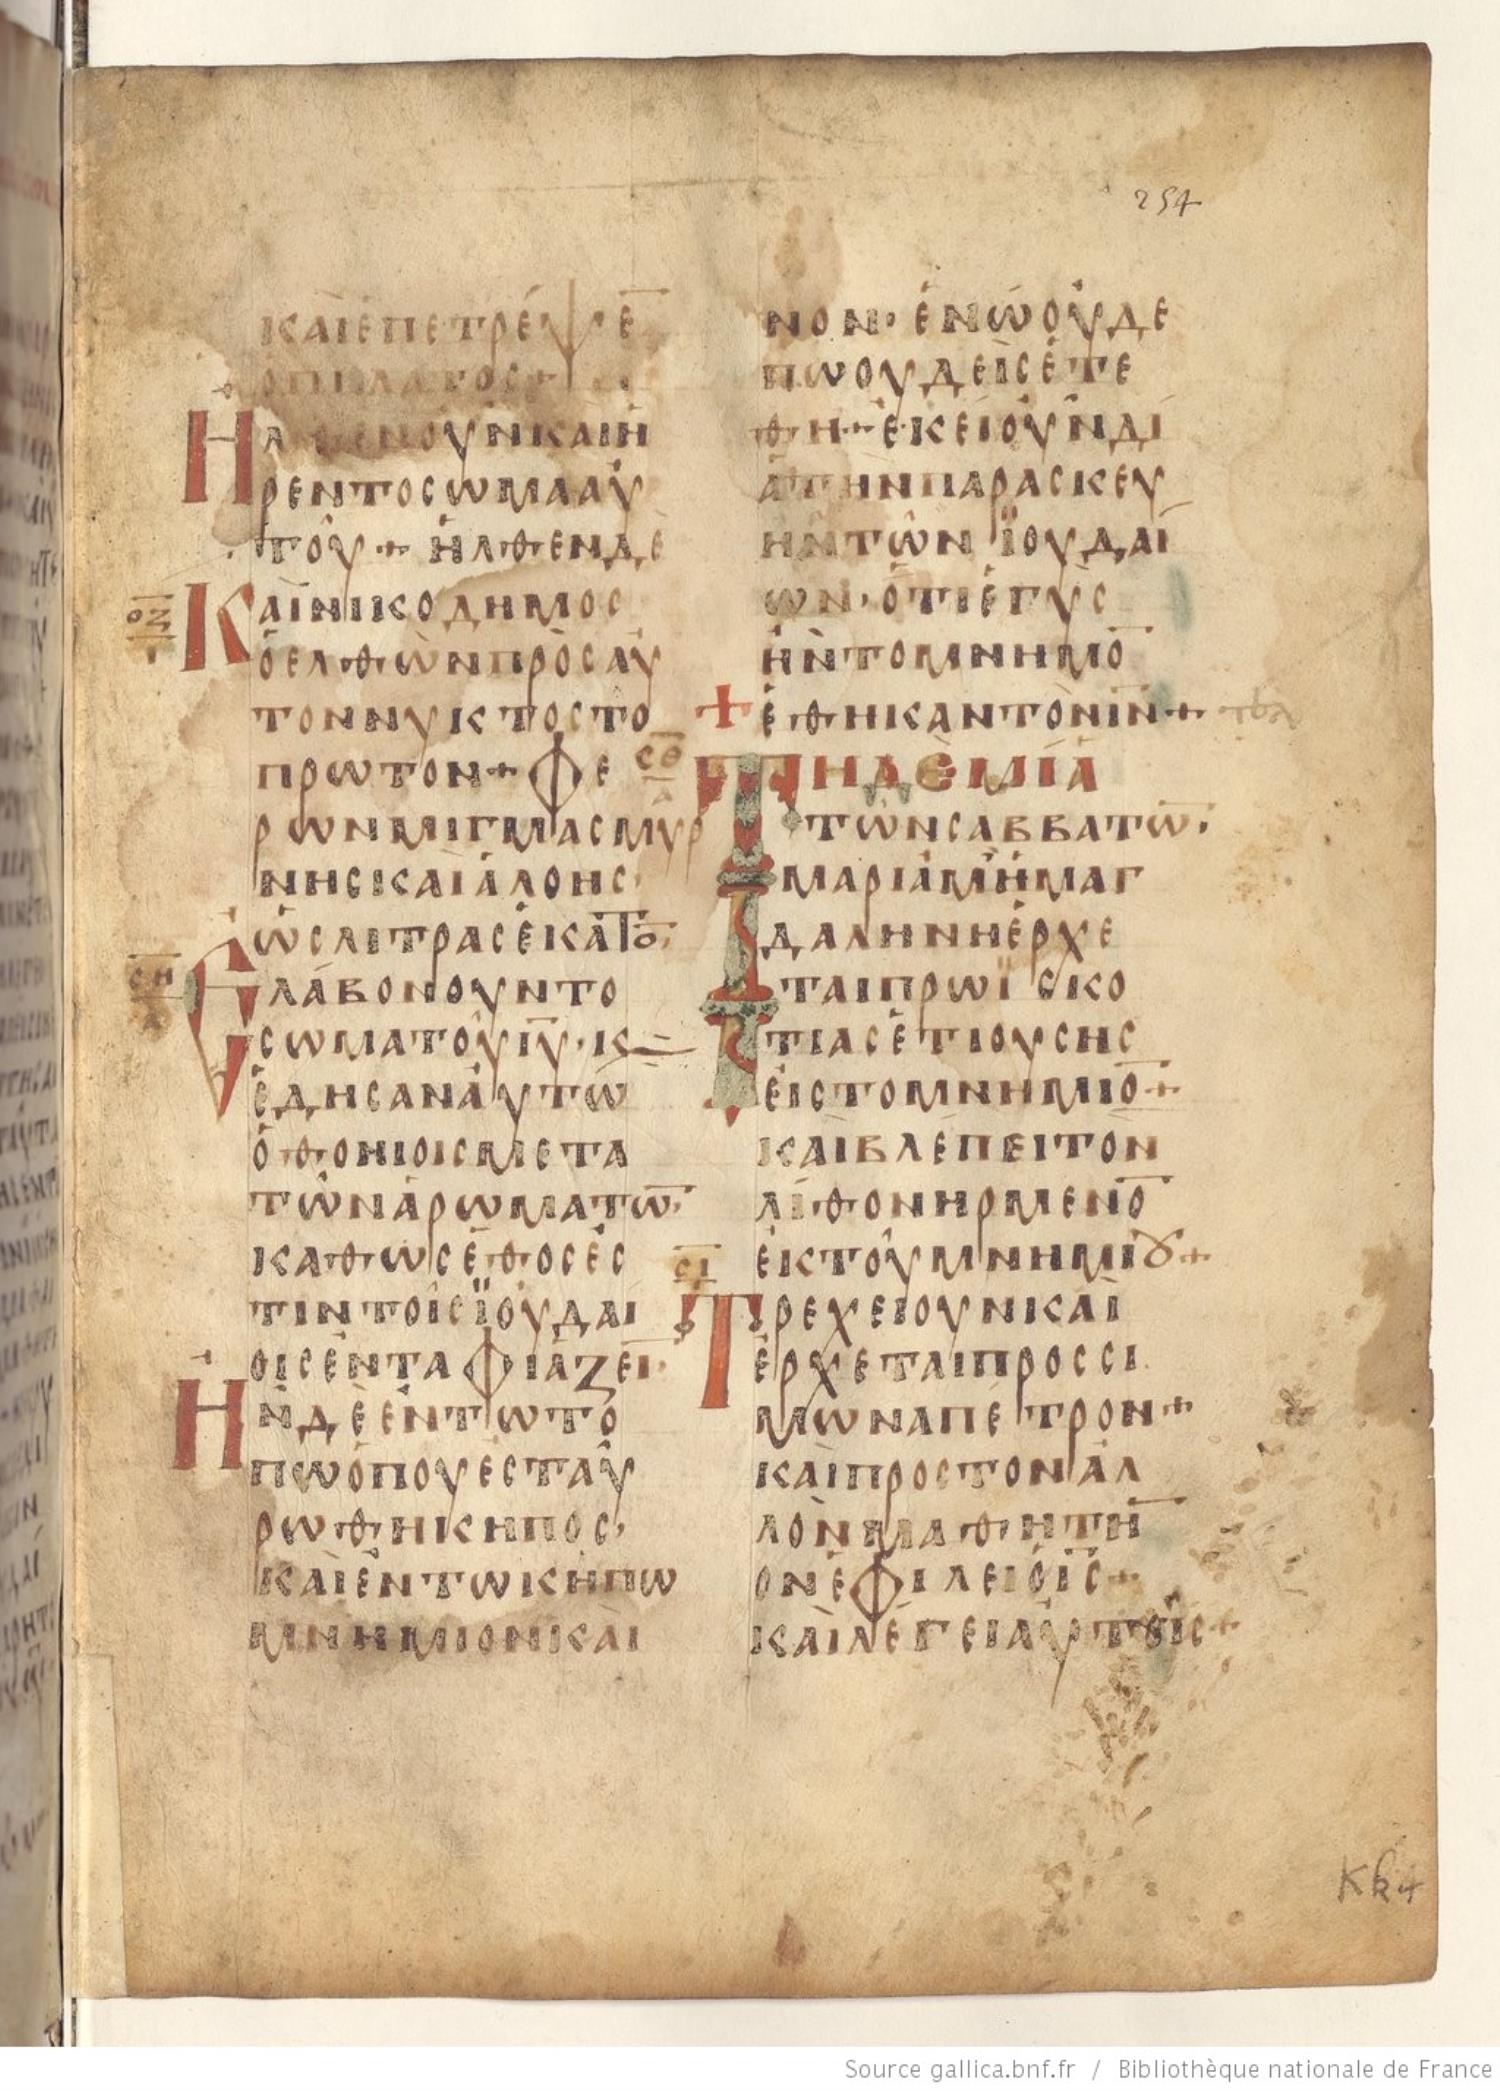 254
ΚΑῚ ἘΠΈΤΡΕΨΕ
Ο ΠΙΛΑΤΟΣ+
ΗΛΘΕΝ ΟΥΝ ΚΑΙ Η
ΡΕΝ ΤΟ ΣΩΜΑ ΑΥ
ΤΟΥ+ ΗΛΘΕΝ ΔΕ
ΚΑΙ ΝΙΚΟΔΗΜΟΣ
Ο ΕΛΘΩΝ ΠΡΟΣ ΑΥ
ΤΟΝ ΝΥΚΤΟΣ ΤΟ
ΠΡΩΤΟΝ+ ΦΕ
ΡΩΝ ΜΙΓΜΑ ΣΜΥΡ
ΝΗΣ ΚΑΙ ΑΛΟΗΣ
ΩΣ ΛΙΤΡΑΣ ΕΚΑΤΟ̅
ΕΛΑΒΟΝ ΟΥΝ ΤΟ
ΣΩΜΑ ΤΟΥ Ι̅Υ̅· Κ
ΕΔΗΣΑΝ ΑΥΤΩ
ΟΘΟΝΙΟΙΣ ΜΕΤΑ
ΤΩΝ ΑΡΩΜΑΤΩ̅
ΚΑΘΩΣ ΕΘΟΣ ΕΣ
ΤΙΝ ΤΟΙΣ ΪΟΥΔΑΙ
ΟΙΣ ΕΝΤΑΦΙΑΖΕΙ̅
ΗΝ ΔΕ ΕΝ ΤΩ ΤΟ
ΠΩ ΟΠΟΥ ΕΣΤΑΥ
ΡΩΘΗ ΚΗΠΟΣ
ΚΑΙ ΕΝ ΤΩ ΚΗΠΩ
ΜΝΗΜΙΟΝ ΚΑΙ
ΝΟΝ· ΕΝ Ω ΟΥΔΕ
ΠΩ ΟΥΔΕΙΣ ΕΤΕ
ΘΗ+ ΕΚΕΙ ΟΥΝ ΔΙ
Α ΤΗΝ ΠΑΡΑΣΚΕΥ
ΗΝ ΤΩΝ ΪΟΥΔΑΙ
ΩΝ· ΟΤΙ ΕΓΓΥΣ
ΗΝ ΤΟ ΜΝΗΜΟ̅
+ ΕΘΗΚΑΝ ΤΟΝ Ι̅Ν̅+
ΤΗ ΔΕ ΜΙΑ
ΤΩΝ ΣΑΒΒΑΤΩ̅
ΜΑΡΙΑΜ Η ΜΑΓ
ΔΑΛΗΝΗ ΕΡΧΕ
ΤΑΙ ΠΡΩΪ ΣΚΟ
ΤΙΑΣ ΕΤΙ ΟΥΣΗΣ
ΕΙΣ ΤΟ ΜΝΗΜΙΟ̅+
ΚΑΙ ΒΛΕΠΕΙ ΤΟΝ
ΛΙΘΟΝ ΗΡΜΕΝΟ̅
ΕΚ ΤΟΥ ΜΝΗΜΙȢ+
ΤΡΕΧΕΙ ΟΥΝ ΚΑΙ
ΕΡΧΕΤΑΙ ΠΡΟΣ ΣΙ
ΜΩΝΑ ΠΕΤΡΟΝ+
ΚΑΙ ΠΡΟΣ ΤΟΝ ΑΛ
ΛΟΝ ΜΑΘΗΤΗ̅
ΟΝ ΕΦΙΛΕΙ Ο Ι̅Σ̅+
ΚΑΙ ΛΕΓΕΙ ΑΥΤΟΙΣ+
Kk 4
Source gallica.bnf.fr / Bibliothèque nationale de France